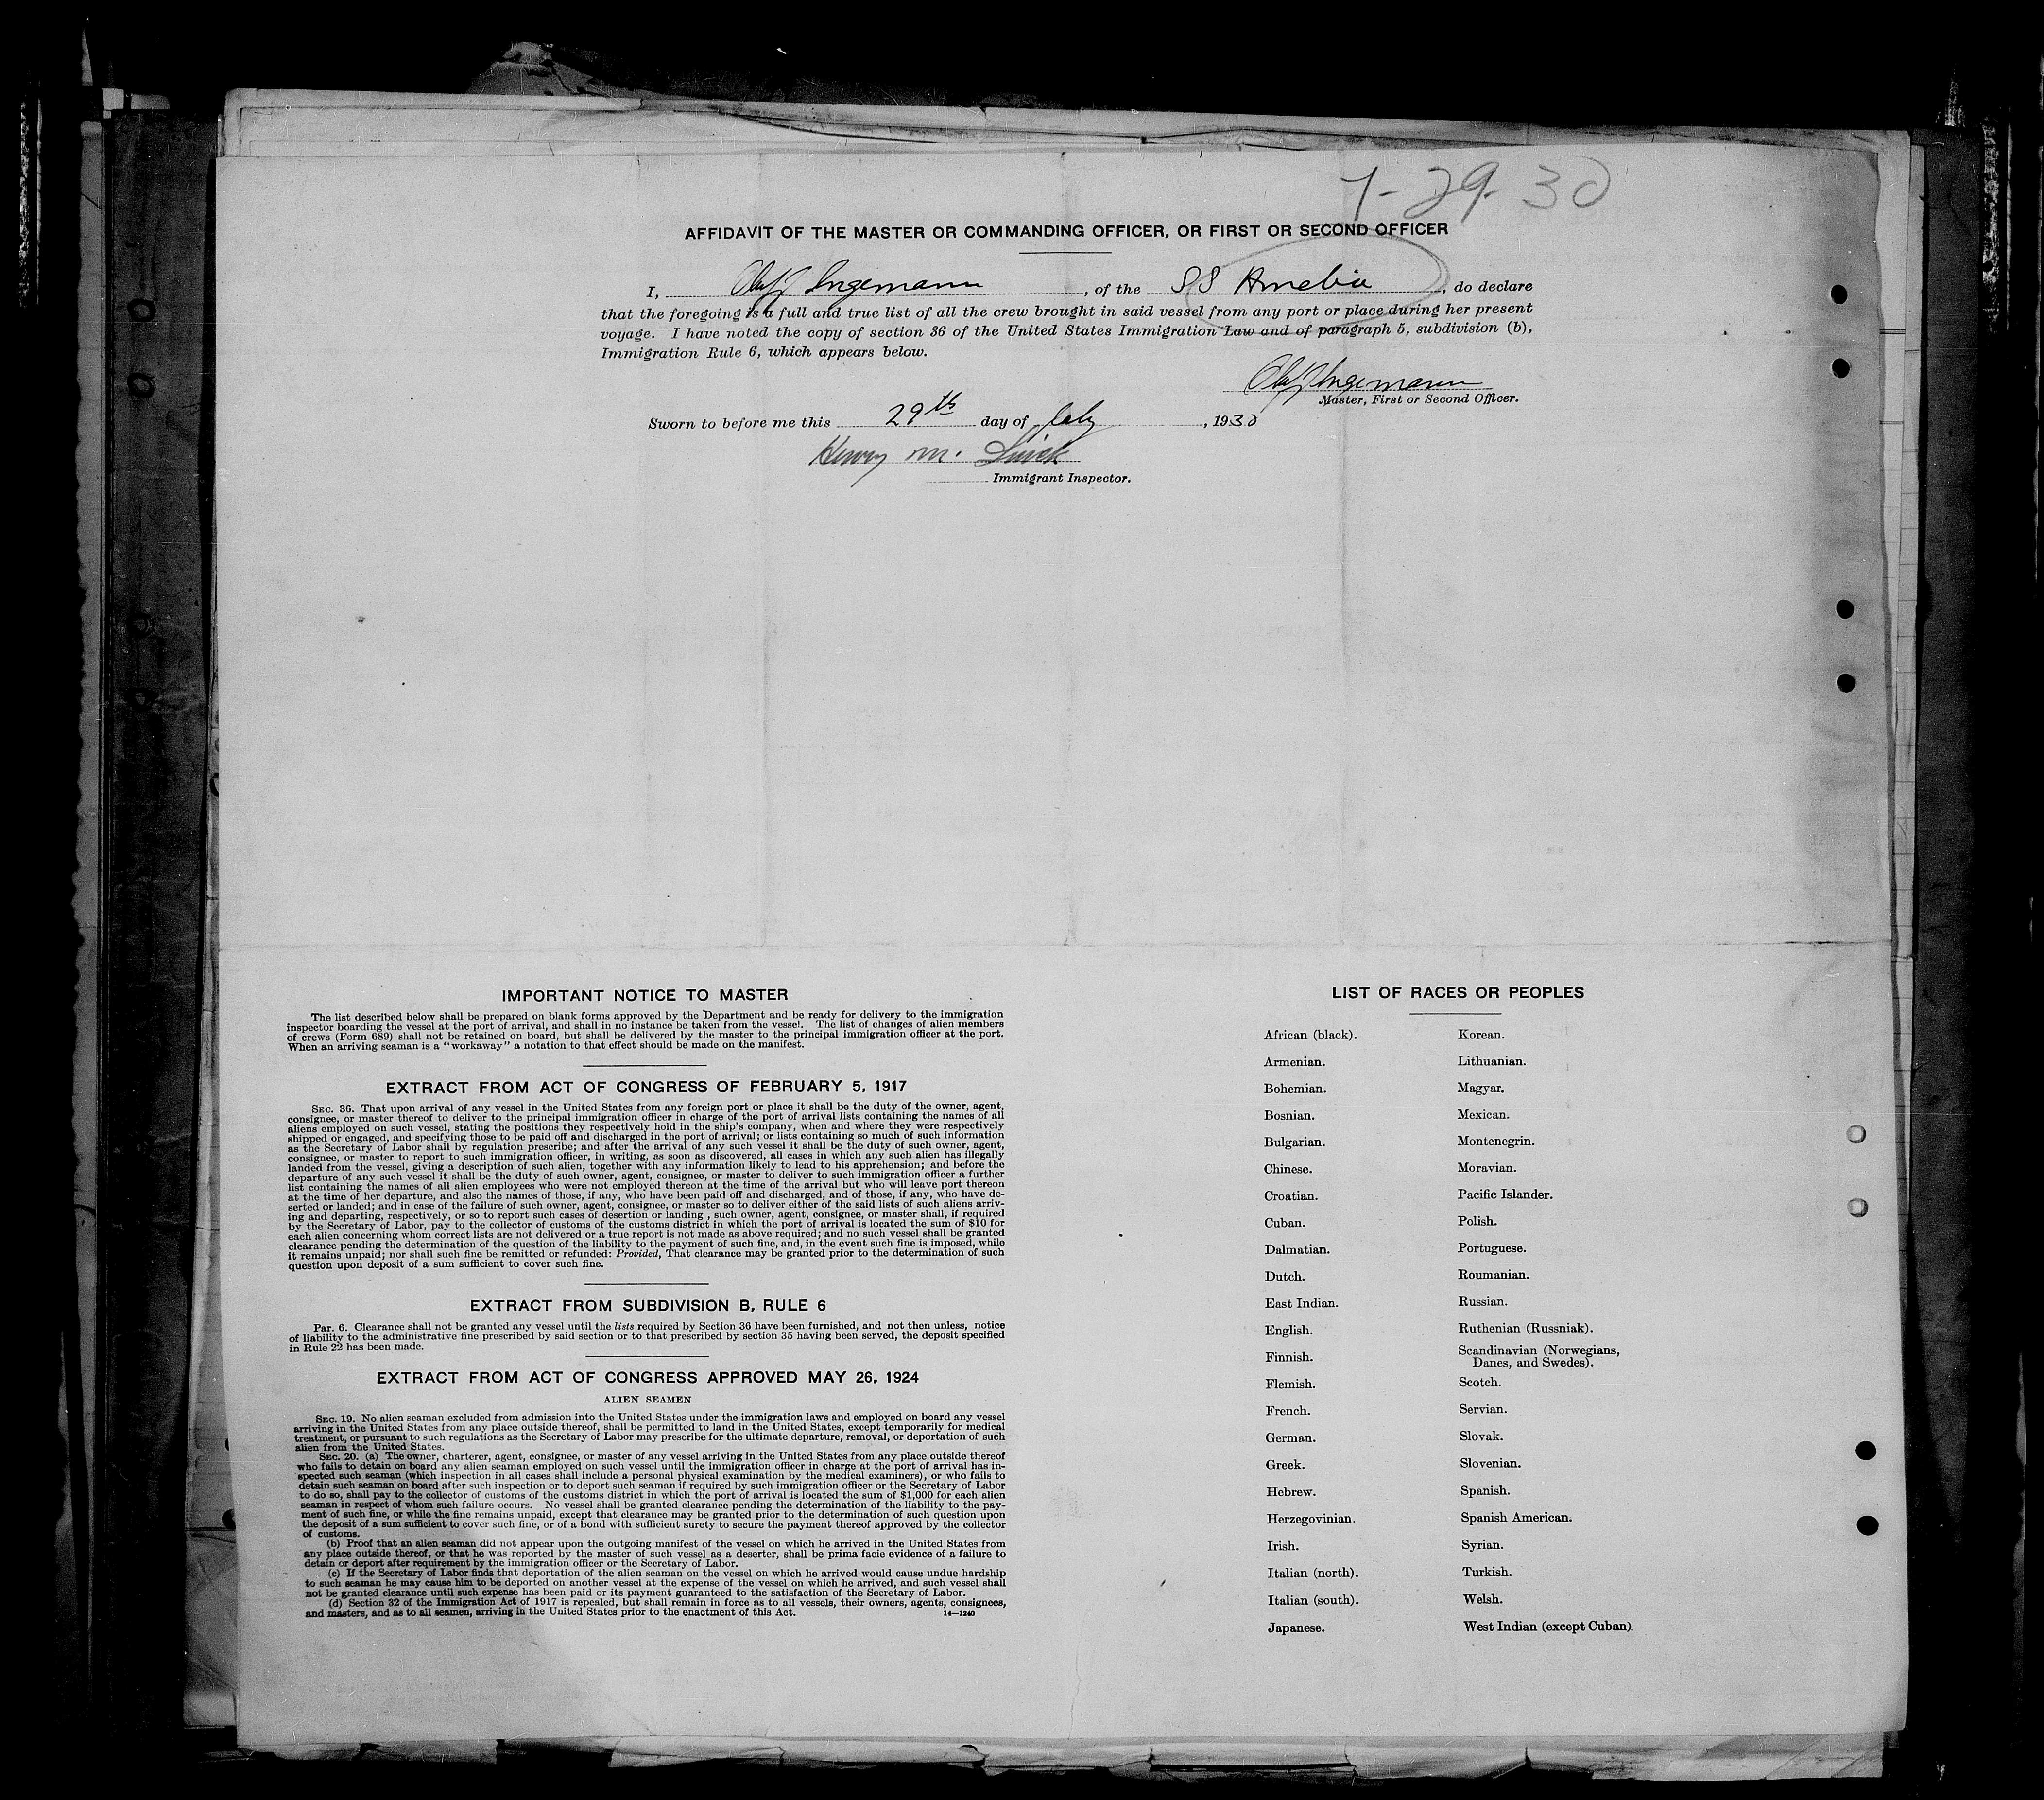 7-29-30
AFFIDAVIT OF THE MASTER OR COMMANDING OFFICER, OR FIRST OR SECOND OFFICER
I, Olaf Ingemann, of the SS Amelia, do declare
that the foregoing is a full and true list of all the crew brought in said vessel from any port or place during her present
voyage. I have noted the copy of section 36 of the United States Immigration Law and of paragraph 5, subdivision (b),
Immigration Rule 6, which appears below.
Olaf Ingemann
Master, First or Second Officer.
Sworn to before me this 29th day of July, 1930
Henry M.
Immigrant Inspector.
IMPORTANT NOTICE TO MASTER
The list described below shall be prepared on blank forms approved by the Department and be ready for delivery to the immigration
inspector boarding the vessel at the port of arrival, and shall in no instance be taken from the vessel. The list of changes of alien members
of crews (Form 689) shall not be retained on board, but shall be delivered by the master to the principal immigration officer at the port.
When an arriving seaman is a "workaway" a notation to that effect should be made on the manifest.
EXTRACT FROM ACT OF CONGRESS OF FEBRUARY 5, 1917
SEC. 36. That upon arrival of any vessel in the United States from any foreign port or place it shall be the duty of the owner, agent,
consignee, or master thereof to deliver to the principal immigration officer in charge of the port of arrival lists containing the names of all
aliens employed on such vessel, stating the positions they respectively hold in the ship's company, when and where they were respectively
shipped or engaged, and specifying those to be paid off and discharged in the port of arrival; or lists containing so much of such information
as the Secretary of Labor shall by regulation prescribe; and after the arrival of any such vessel it shall be the duty of such owner, agent,
consignee, or master to report to such immigration officer, in writing, as soon as discovered, all cases in which any such alien has illegally
landed from the vessel, giving a description of such alien, together with any information likely to lead to his apprehension; and before the
departure of any such vessel it shall be the duty of such owner, agent, consignee, or master to deliver to such immigration officer a further
list containing the names of all alien employees who were not employed thereon at the time of the arrival but who will leave port thereon
at the time of her departure, and also the names of those, if any, who have been paid off and discharged, and of those, if any, who have de-
serted or landed; and in case of the failure of such owner, agent, consignee, or master so to deliver either of the said lists of such aliens arriv-
ing and departing, respectively, or so to report such cases of desertion or landing , such owner, agent, consignee, or master shall, if required
by the Secretary of Labor, pay to the collector of customs of the customs district in which the port of arrival is located the sum of $10 for
each alien concerning whom correct lists are not delivered or a true report is not made as above required; and no such vessel shall be granted
clearance pending the determination of the question of the liability to the payment of such fine, and, in the event such fine is imposed, while
it remains unpaid; nor shall such fine be remitted or refunded: Provided, That clearance may be granted prior to the determination of such
question upon deposit of a sum sufficient to cover such fine.
EXTRACT FROM SUBDIVISION B, RULE 6
PAR. 6. Clearance shall not be granted any vessel until the lists required by Section 36 have been furnished, and not then unless, notice
of liability to the administrative fine prescribed by said section or to that prescribed by section 35 having been served, the deposit specified
in Rule 22 has been made.
EXTRACT FROM ACT OF CONGRESS APPROVED MAY 26, 1924
ALIEN SEAMEN
SEC. 19. No alien seaman excluded from admission into the United States under the immigration laws and employed on board any vessel
arriving in the United States from any place outside thereof, shall be permitted to land in the United States, except temporarily for medical
treatment, or pursuant to such regulations as the Secretary of Labor may prescribe for the ultimate departure, removal, or deportation of such
alien from the United States.
SEC. 20. (a) The owner, charterer, agent, consignee, or master of any vessel arriving in the United States from any place outside thereof
who fails to detain on board any alien seaman employed on such vessel until the immigration officer in charge at the port of arrival has in-
spected such seaman (which inspection in all cases shall include a personal physical examination by the medical examiners), or who fails to
detain such seaman on board after such inspection or to deport such seaman if required by such immigration officer or the Secretary of Labor
to do so, shall pay to the collector of customs of the customs district in which the port of arrival is located the sum of $1,000 for each alien
seaman in respect of whom such failure occurs. No vessel shall be granted clearance pending the determination of the liability to the pay-
ment of such fine, or while the fine remains unpaid, except that clearance may be granted prior to the determination of such question upon
the deposit of a sum sufficient to cover such fine, or of a bond with sufficient surety to secure the payment thereof approved by the collector
of customs.
(b) Proof that an alien seaman did not appear upon the outgoing manifest of the vessel on which he arrived in the United States from
any place outside thereof, or that he was reported by the master of such vessel as a deserter, shall be prima facie evidence of a failure to
detain or deport after requirement by the immigration officer or the Secretary of Labor.
(c) If the Secretary of Labor finds that deportation of the alien seaman on the vessel on which he arrived would cause undue hardship
to such seaman he may cause him to be deported on another vessel at the expense of the vessel on which he arrived, and such vessel shall
not be granted clearance until such expense has been paid or its payment guaranteed to the satisfaction of the Secretary of Labor.
(d) Section 32 of the Immigration Act of 1917 is repealed, but shall remain in force as to all vessels, their owners, agents, consignees,
and masters, and as to all seamen, arriving in the United States prior to the enactment of this Act. 14—1240
LIST OF RACES OR PEOPLES
African (black). Korean.
Armenian. Lithuanian.
Bohemian. Magyar.
Bosnian. Mexican.
Bulgarian. Montenegrin.
Chinese. Moravian.
Croatian. Pacific Islander.
Cuban. Polish.
Dalmatian. Portuguese.
Dutch. Roumanian.
East Indian. Russian.
English. Ruthenian (Russniak).
Finnish. Scandinavian (Norwegians,
Danes, and Swedes).
Flemish. Scotch.
French. Servian.
German. Slovak.
Greek. Slovenian.
Hebrew. Spanish.
Herzegovinian. Spanish American.
Irish. Syrian.
Italian (north). Turkish.
Italian (south). Welsh.
Japanese. West Indian (except Cuban).